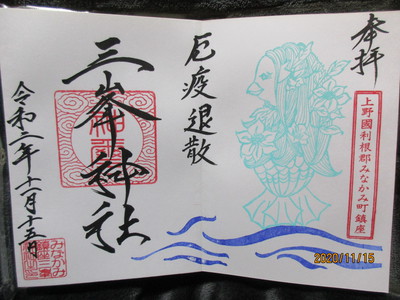 奉拝
上野國利根郡みなかみ町鎮座
厄疫退散
三峯神社
令和二年十一月十五日
みなかみ
鎮座三峯
2020/11/15